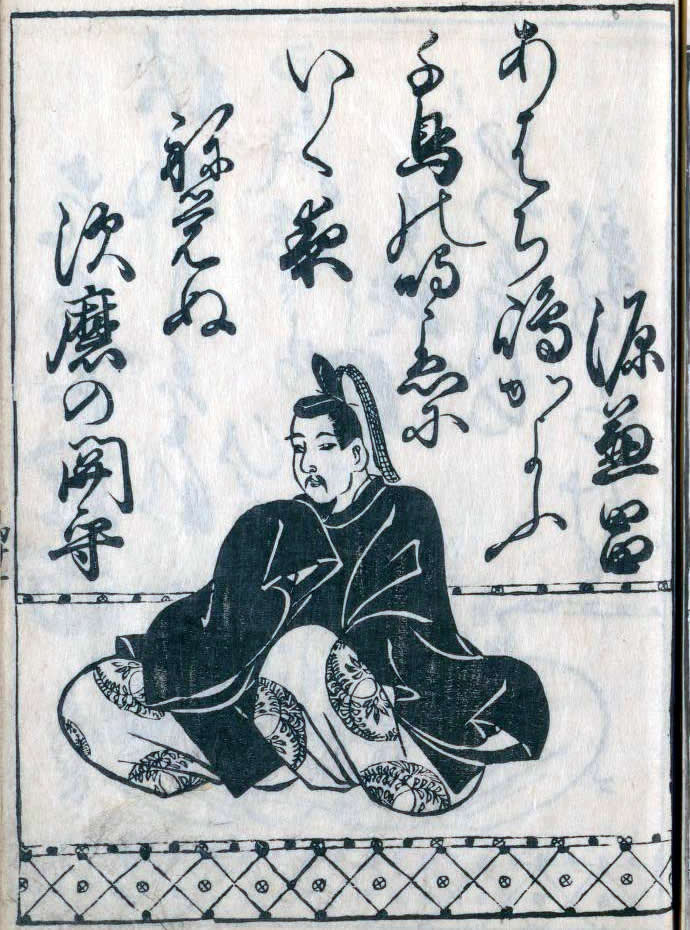 源兼昌
あはち嶋かよふ
千鳥の鳴こゑに
いく夜
ね覚ぬ
須磨の関守